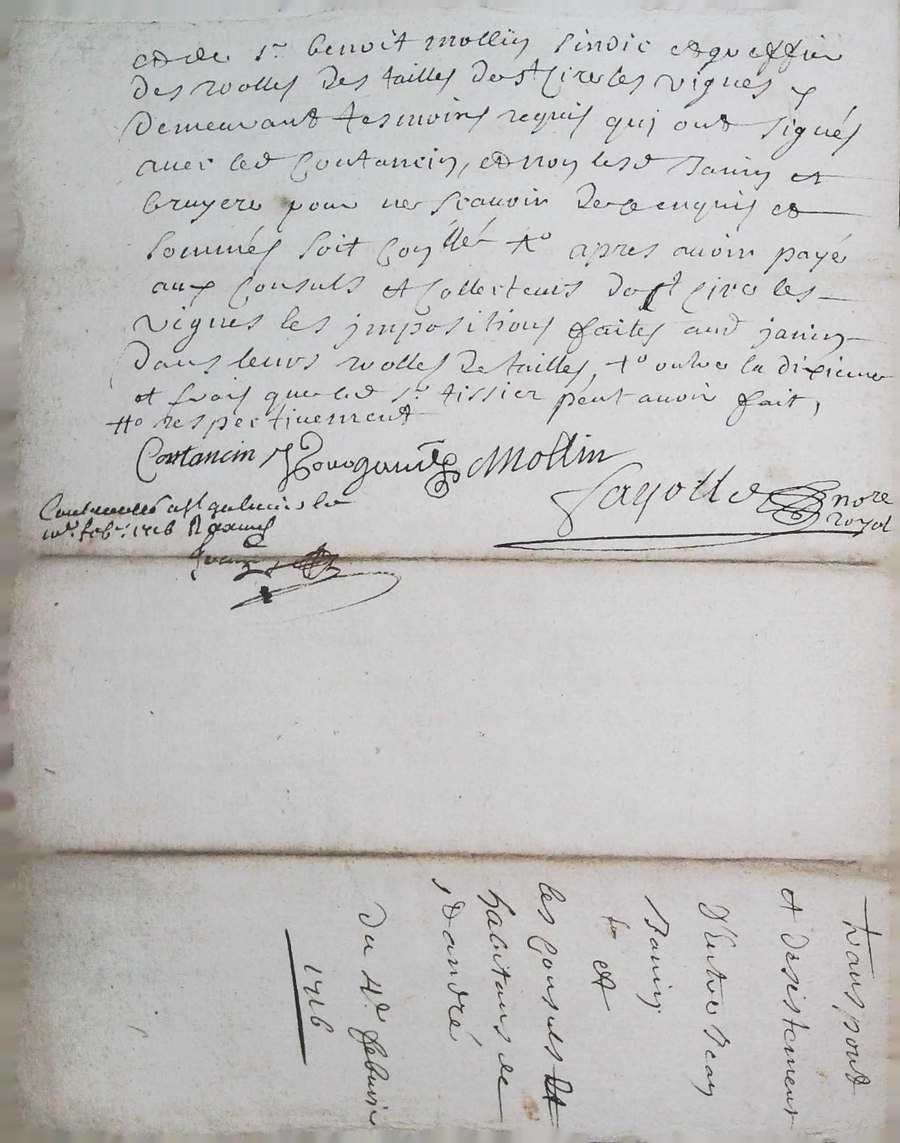 et de sr benoit mollin sindic et greffier
des rolles des tailles de st Cire les vignes y
demeurant tesmoins requis qui ont signés
avec led Coutancin, et non lesd Janin et
bruyere pour ne scavoir de ce enquis et
sommés soit Con^llé #o apres avoir payé
aux Consuls et Collecteurs de st Cire les
vignes les impositions faites aud janin
dans leurs rolles de tailles, #o outre la dixieme
et frais que led sr tissier peut avoir fait,
#o respectivement
Coutancin mollin
fayolle nore
royal
1716
transport
et desistement
d'entre Jean
Janin
et
les Consuls et
habitans de
st andré
du 4e febvrier
1716